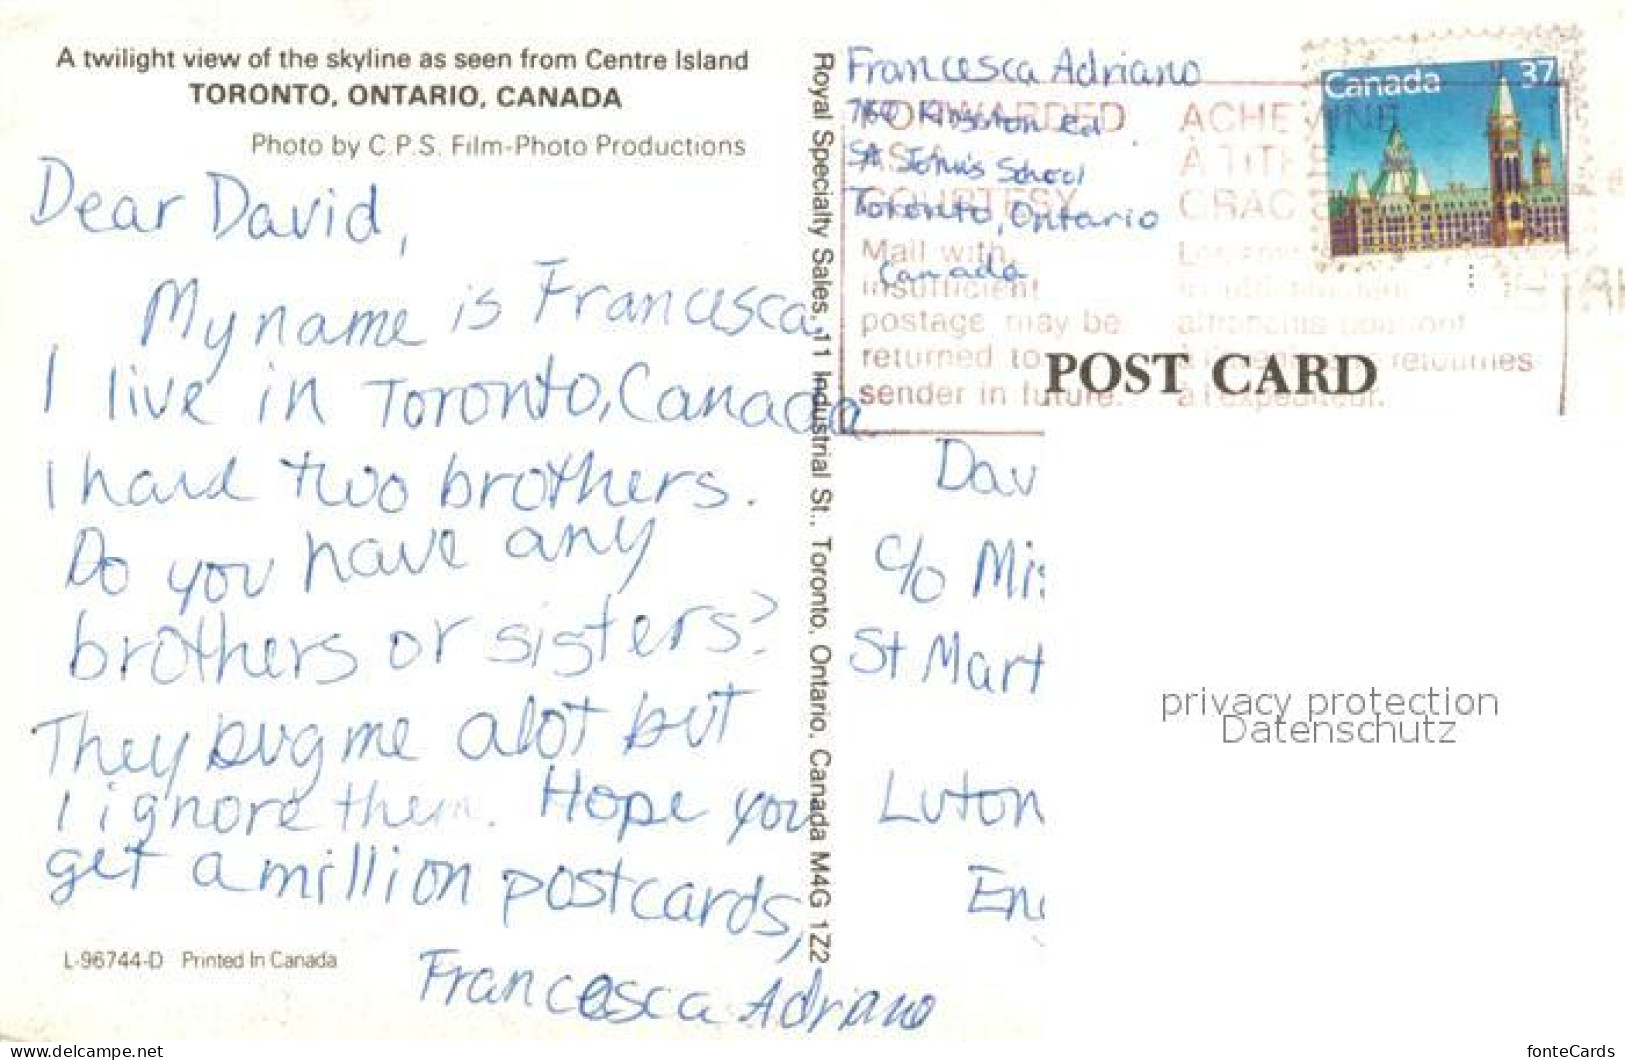 A twilight view of the skyline as seen from Centre Island
TORONTO, ONTARIO, CANADA
Photo by C.P.S. Film-Photo Productions
Dear David,
My name is Francesca.
I live in Toronto, Canada.
I have two brothers.
Do you have any
brothers or sisters?
They bug me alot but
I ignore them. Hope you
get a million postcards,
Francesca Adriano
L-96744-D Printed In Canada
Royal Specialty Sales, 11 Industrial St., Toronto, Ontario, Canada M4G 1Z2
Francesca Adriano
Kingston Rd
St John's School
Toronto, Ontario
Canada
Canada 37
FORWARDED
COURTESY
Mail with
insufficient
postage may be
returned to
sender in future.
ACHEMINE
A TITRE
GRAC
retournes
a l'expediteur.
POST CARD
Dav
c/o Mis
St Mart
Luton
Eng
privacy protection
Datenschutz
https://www.delcampe.net
fonteCards